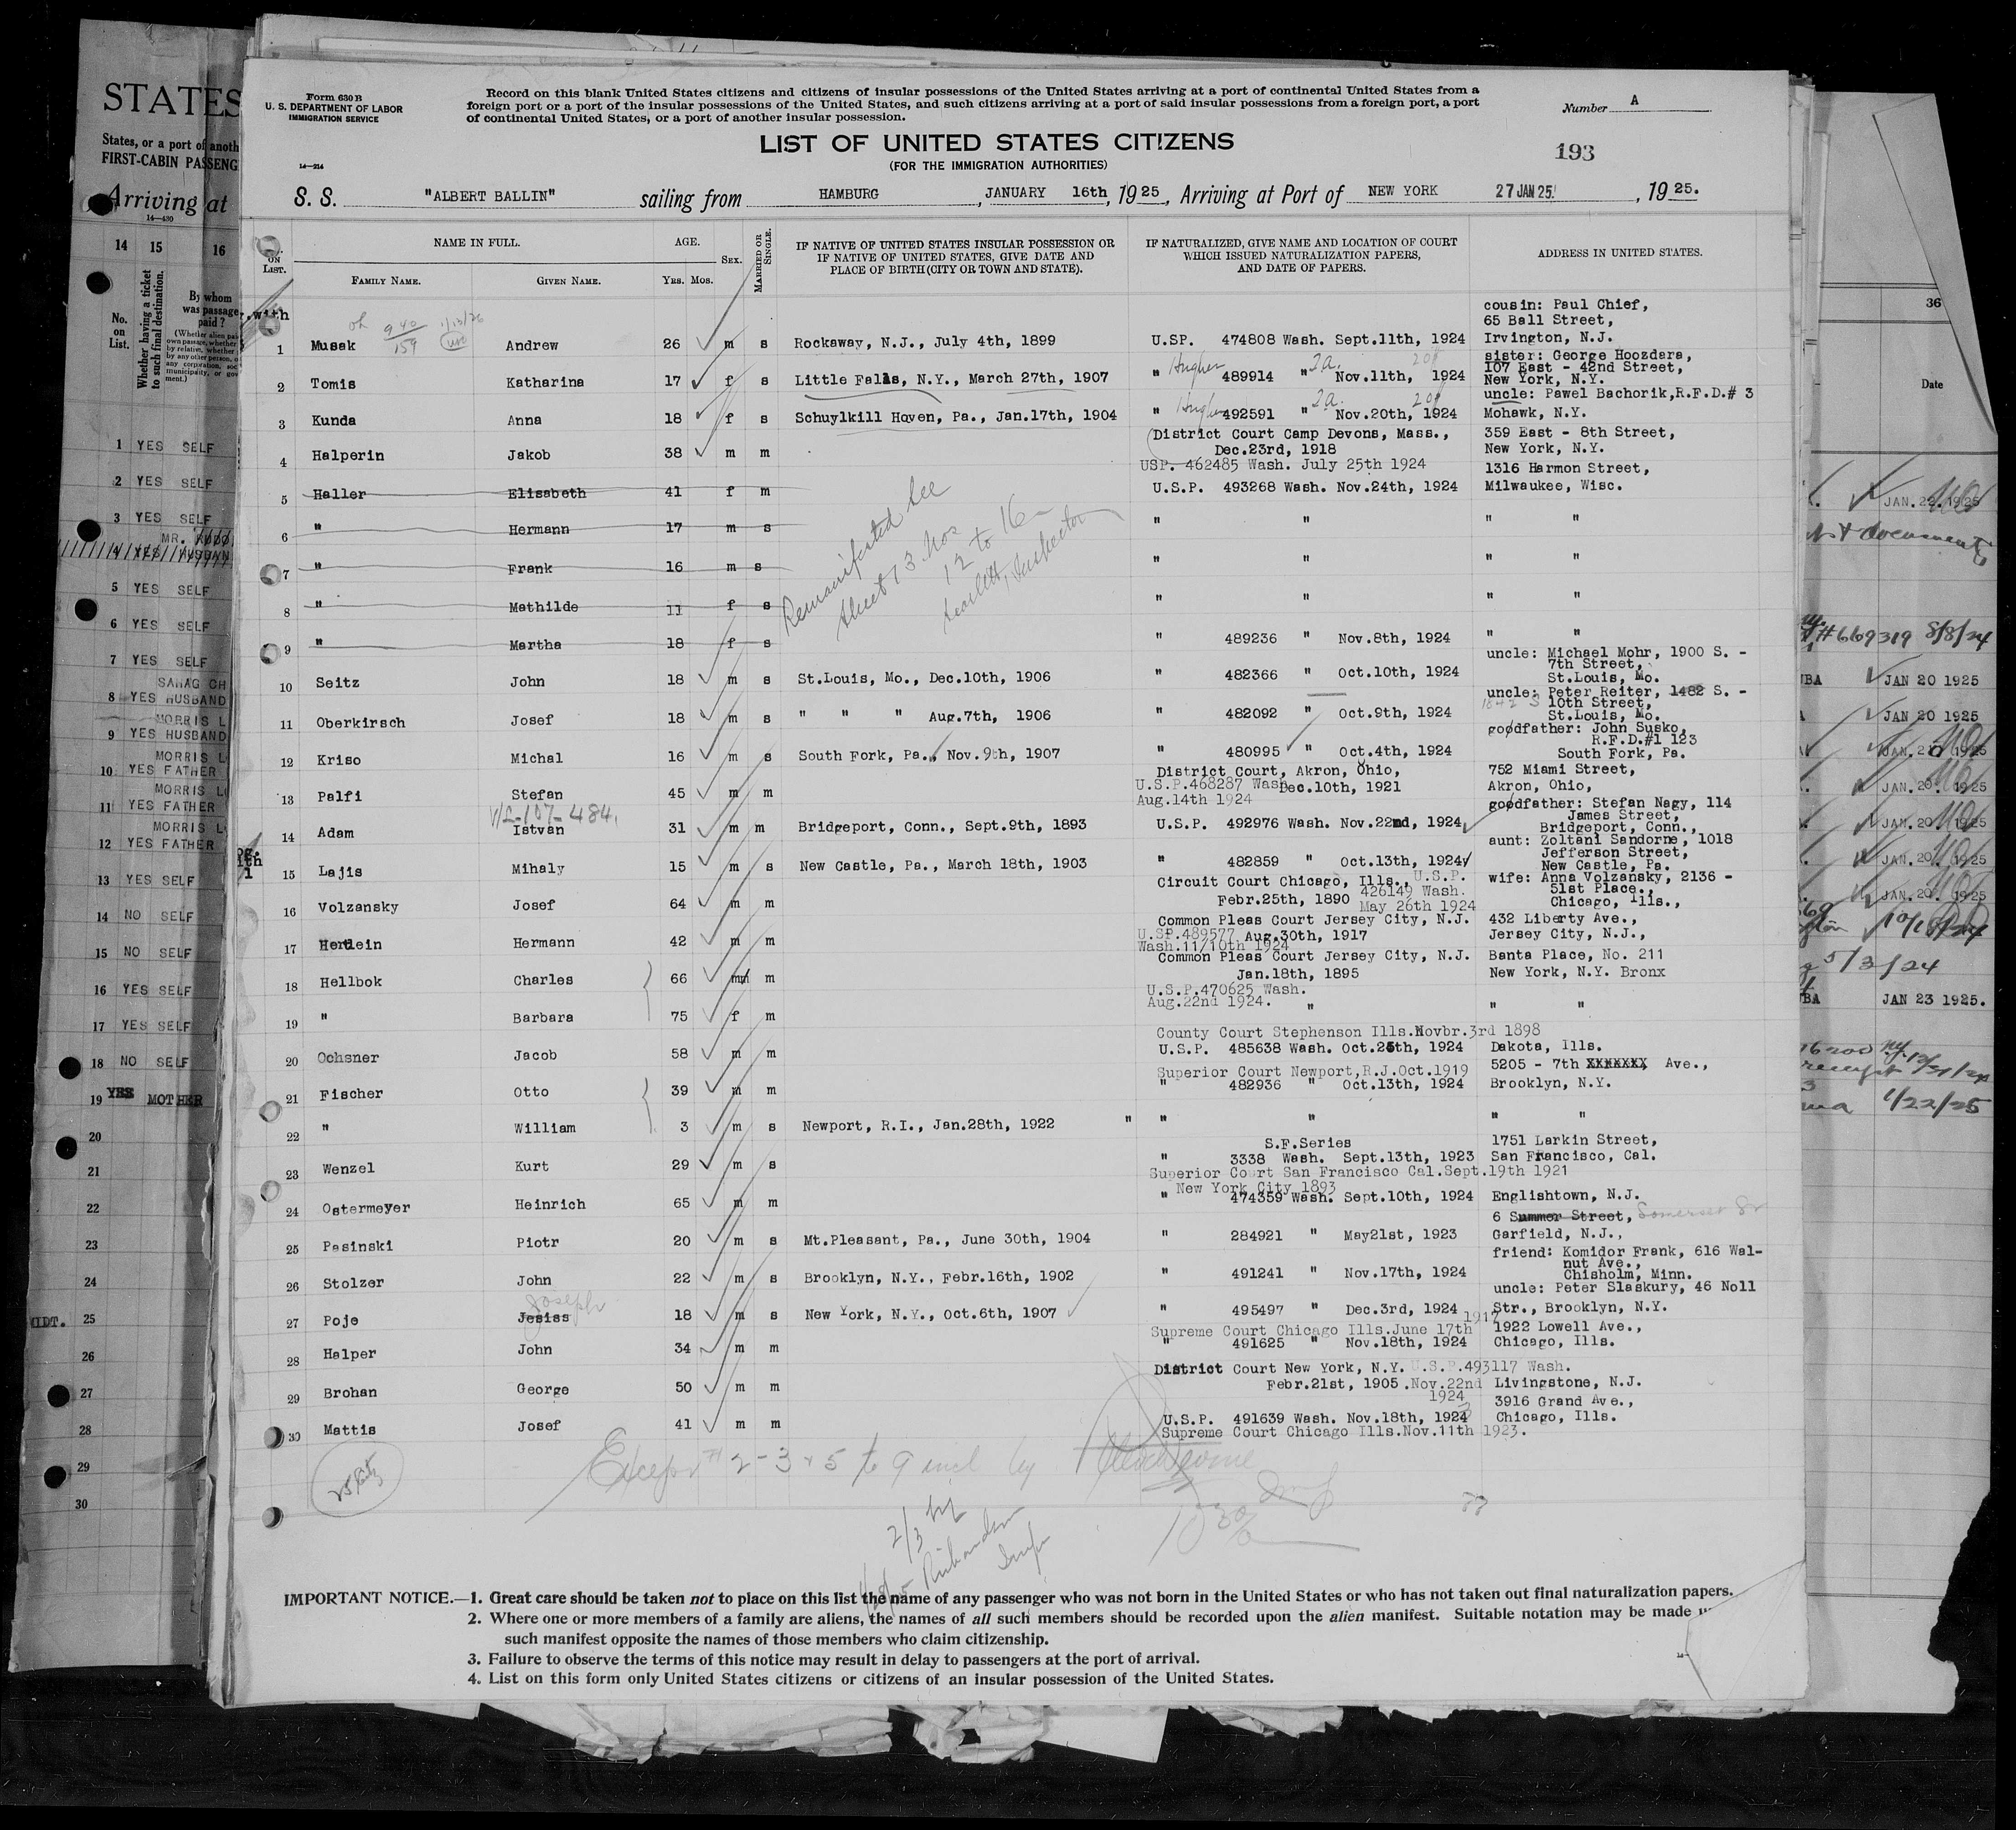 Form 630 B
U. S. DEPARTMENT OF LABOR
IMMIGRATION SERVICE
14—214
Record on this blank United States citizens and citizens of insular possessions of the United States arriving at a port of continental United States from a
foreign port or a port of the insular possessions of the United States, and such citizens arriving at a port of said insular possessions from a foreign port, a port
of continental United States, or a port of another insular possession.
Number A
LIST OF UNITED STATES CITIZENS
(FOR THE IMMIGRATION AUTHORITIES)
193
S. S. "ALBERT BALLIN" sailing from HAMBURG, JANUARY 16th, 1925, Arriving at Port of NEW YORK 27 JAN 25, 1925.
ON LIST. NAME IN FULL. AGE. SEX. MARRIED OR SINGLE. IF NATIVE OF UNITED STATES INSULAR POSSESSION OR IF NATIVE OF UNITED STATES, GIVE DATE AND PLACE OF BIRTH (CITY OR TOWN AND STATE). IF NATURALIZED, GIVE NAME AND LOCATION OF COURT WHICH ISSUED NATURALIZATION PAPERS, AND DATE OF PAPERS. ADDRESS IN UNITED STATES.
FAMILY NAME. GIVEN NAME. YRS. MOS.
cousin: Paul Chief,
65 Ball Street,
1 Musak Andrew 26 m s Rockaway, N.J., July 4th, 1899 U.SP. 474808 Wash. Sept.11th, 1924 Irvington, N.J.
sister: George Hoozdara,
107 East - 42nd Street,
2 Tomis Katharina 17 f s Little Falls, N.Y., March 27th, 1907 " Hughes 489914 " 2a. Nov.11th, 1924 New York, N.Y.
uncle: Pawel Bachorik,R.F.D.# 3
3 Kunda Anna 18 f s Schuylkill Hoven, Pa., Jan.17th, 1904 " 492591 " 2a. Nov.20th, 1924 Mohawk, N.Y.
District Court Camp Devons, Mass., 359 East - 8th Street,
4 Halperin Jakob 38 m m Dec.23rd, 1918 New York, N.Y.
USP. 462485 Wash. July 25th 1924 1316 Harmon Street,
5 Haller Elisabeth 41 f m U.S.P. 493268 Wash. Nov.24th, 1924 Milwaukee, Wisc.
6 " Hermann 17 m s " " " "
7 " Frank 16 m s " " " "
8 " Mathilde 11 f s " " " "
9 " Martha 18 f s " 489236 " Nov.8th, 1924 " "
Remanifested see
sheet 13 Nos
12 to 16
Inspector
uncle: Michael Mohr, 1900 S. -
7th Street,
10 Seitz John 18 m s St.Louis, Mo., Dec.10th, 1906 " 482366 " Oct.10th, 1924 St.Louis, Mo.
uncle: Peter Reiter, 1482 S. -
1842 S 10th Street,
11 Oberkirsch Josef 18 m s " " " Aug.7th, 1906 " 482092 " Oct.9th, 1924 St.Louis, Mo.
goodfather: John Susko,
R.F.D.#1 123
12 Kriso Michal 16 m s South Fork, Pa., Nov.9th, 1907 " 480995 " Oct.4th, 1924 South Fork, Pa.
District Court, Akron, Ohio, 752 Miami Street,
13 Palfi Stefan 45 m m U.S.P.468287 Wash Dec.10th, 1921 Akron, Ohio,
Aug.14th 1924
V/L-107-484.
goodfather: Stefan Nagy, 114
James Street,
14 Adam Istvan 31 m m Bridgeport, Conn., Sept.9th, 1893 U.S.P. 492976 Wash. Nov.22nd, 1924 Bridgeport, Conn.,
aunt: Zoltani Sandorne, 1018
Jefferson Street,
15 Lajis Mihaly 15 m s New Castle, Pa., March 18th, 1903 " 482859 " Oct.13th, 1924 New Castle, Pa.
Circuit Court Chicago, Ills., U.S.P. wife: Anna Volzansky, 2136 -
426149 Wash. 51st Place.,
16 Volzansky Josef 64 m m Febr.25th, 1890 May 26th 1924 Chicago, Ills.,
Common Pleas Court Jersey City, N.J. 432 Liberty Ave.,
17 Herdlein Hermann 42 m m U.SP.489577 Aug.30th, 1917 Jersey City, N.J.,
Wash.11/10th 1924
Common Pleas Court Jersey City, N.J. Banta Place, No. 211
18 Hellbok Charles 66 m m Jan.18th, 1895 New York, N.Y. Bronx
U.S.P.470625 Wash.
Aug.22nd 1924.
19 " Barbara 75 f m " " "
County Court Stephenson Ills.Novbr.3rd 1898
20 Ochsner Jacob 58 m m U.S.P. 485638 Wash. Oct.25th, 1924 Dakota, Ills.
Superior Court Newport,R.J.Oct.1919 5205 - 7th XXXXXXX Ave.,
21 Fischer Otto 39 m m " 482936 " Oct.13th, 1924 Brooklyn, N.Y.
22 " William 3 m s Newport, R.I., Jan.28th, 1922 " " " " "
S.F.Series 1751 Larkin Street,
23 Wenzel Kurt 29 m s " 3338 Wash. Sept.13th, 1923 San Francisco, Cal.
Superior Court San Francisco Cal.Sept.19th 1921
New York City 1893
24 Ostermeyer Heinrich 65 m m " 474359 Wash. Sept.10th, 1924 Englishtown, N.J.
6 Summer Street, Somerset St
25 Pasinski Piotr 20 m s Mt.Pleasant, Pa., June 30th, 1904 " 284921 " May21st, 1923 Garfield, N.J.,
friend: Komidor Frank, 616 Wal-
nut Ave.,
26 Stolzer John 22 m s Brooklyn, N.Y., Febr.16th, 1902 " 491241 " Nov.17th, 1924 Chisholm, Minn.
Joseph
uncle: Peter Slaskury, 46 Noll
27 Poje Jesiss 18 m s New York, N.Y., Oct.6th, 1907 " 495497 " Dec.3rd, 1924 Str., Brooklyn, N.Y.
Supreme Court Chicago Ills.June 17th 1917 1922 Lowell Ave.,
28 Halper John 34 m m " 491625 " Nov.18th, 1924 Chicago, Ills.
District Court New York, N.Y. U.S.P.493117 Wash.
29 Brohan George 50 m m Febr.21st, 1905 .Nov.22nd 1924 Livingstone, N.J.
3916 Grand Ave.,
30 Mattis Josef 41 m m U.S.P. 491639 Wash. Nov.18th, 1924 Chicago, Ills.
Supreme Court Chicago Ills.Nov.11th 1923.
Except # 2-3 + 5 to 9 incl by
2/3 by
Richardson
Insp
10 30
IMPORTANT NOTICE.—1. Great care should be taken not to place on this list the name of any passenger who was not born in the United States or who has not taken out final naturalization papers.
2. Where one or more members of a family are aliens, the names of all such members should be recorded upon the alien manifest. Suitable notation may be made
such manifest opposite the names of those members who claim citizenship.
3. Failure to observe the terms of this notice may result in delay to passengers at the port of arrival.
4. List on this form only United States citizens or citizens of an insular possession of the United States.
STATES
States, or a port of anoth
FIRST-CABIN PASSENG
Arriving at
14—430
14 15 16
No. on List.
Whether having a ticket to such final destination.
By whom was passage paid?
1 YES SELF
2 YES SELF
3 YES SELF
4 YES HUSBAN
5 YES SELF
6 YES SELF
7 YES SELF
8 YES HUSBAND
MORRIS L
9 YES HUSBAND
MORRIS L
10 YES FATHER
MORRIS L
11 YES FATHER
MORRIS L
12 YES FATHER
13 YES SELF
14 NO SELF
15 NO SELF
16 YES SELF
17 YES SELF
18 NO SELF
19 YES MOTHER
20
21
22
23
24
MIDT. 25
26
27
28
29
30
36
Date
JAN. 22. 1925
documents
#669319 8/8/24
JAN 20 1925
JAN 20 1925
JAN. 20. 1925
JAN. 20. 1925
JAN. 20. 1925
JAN. 20. 1925
5/3/24
JAN 23 1925.
1/22/25